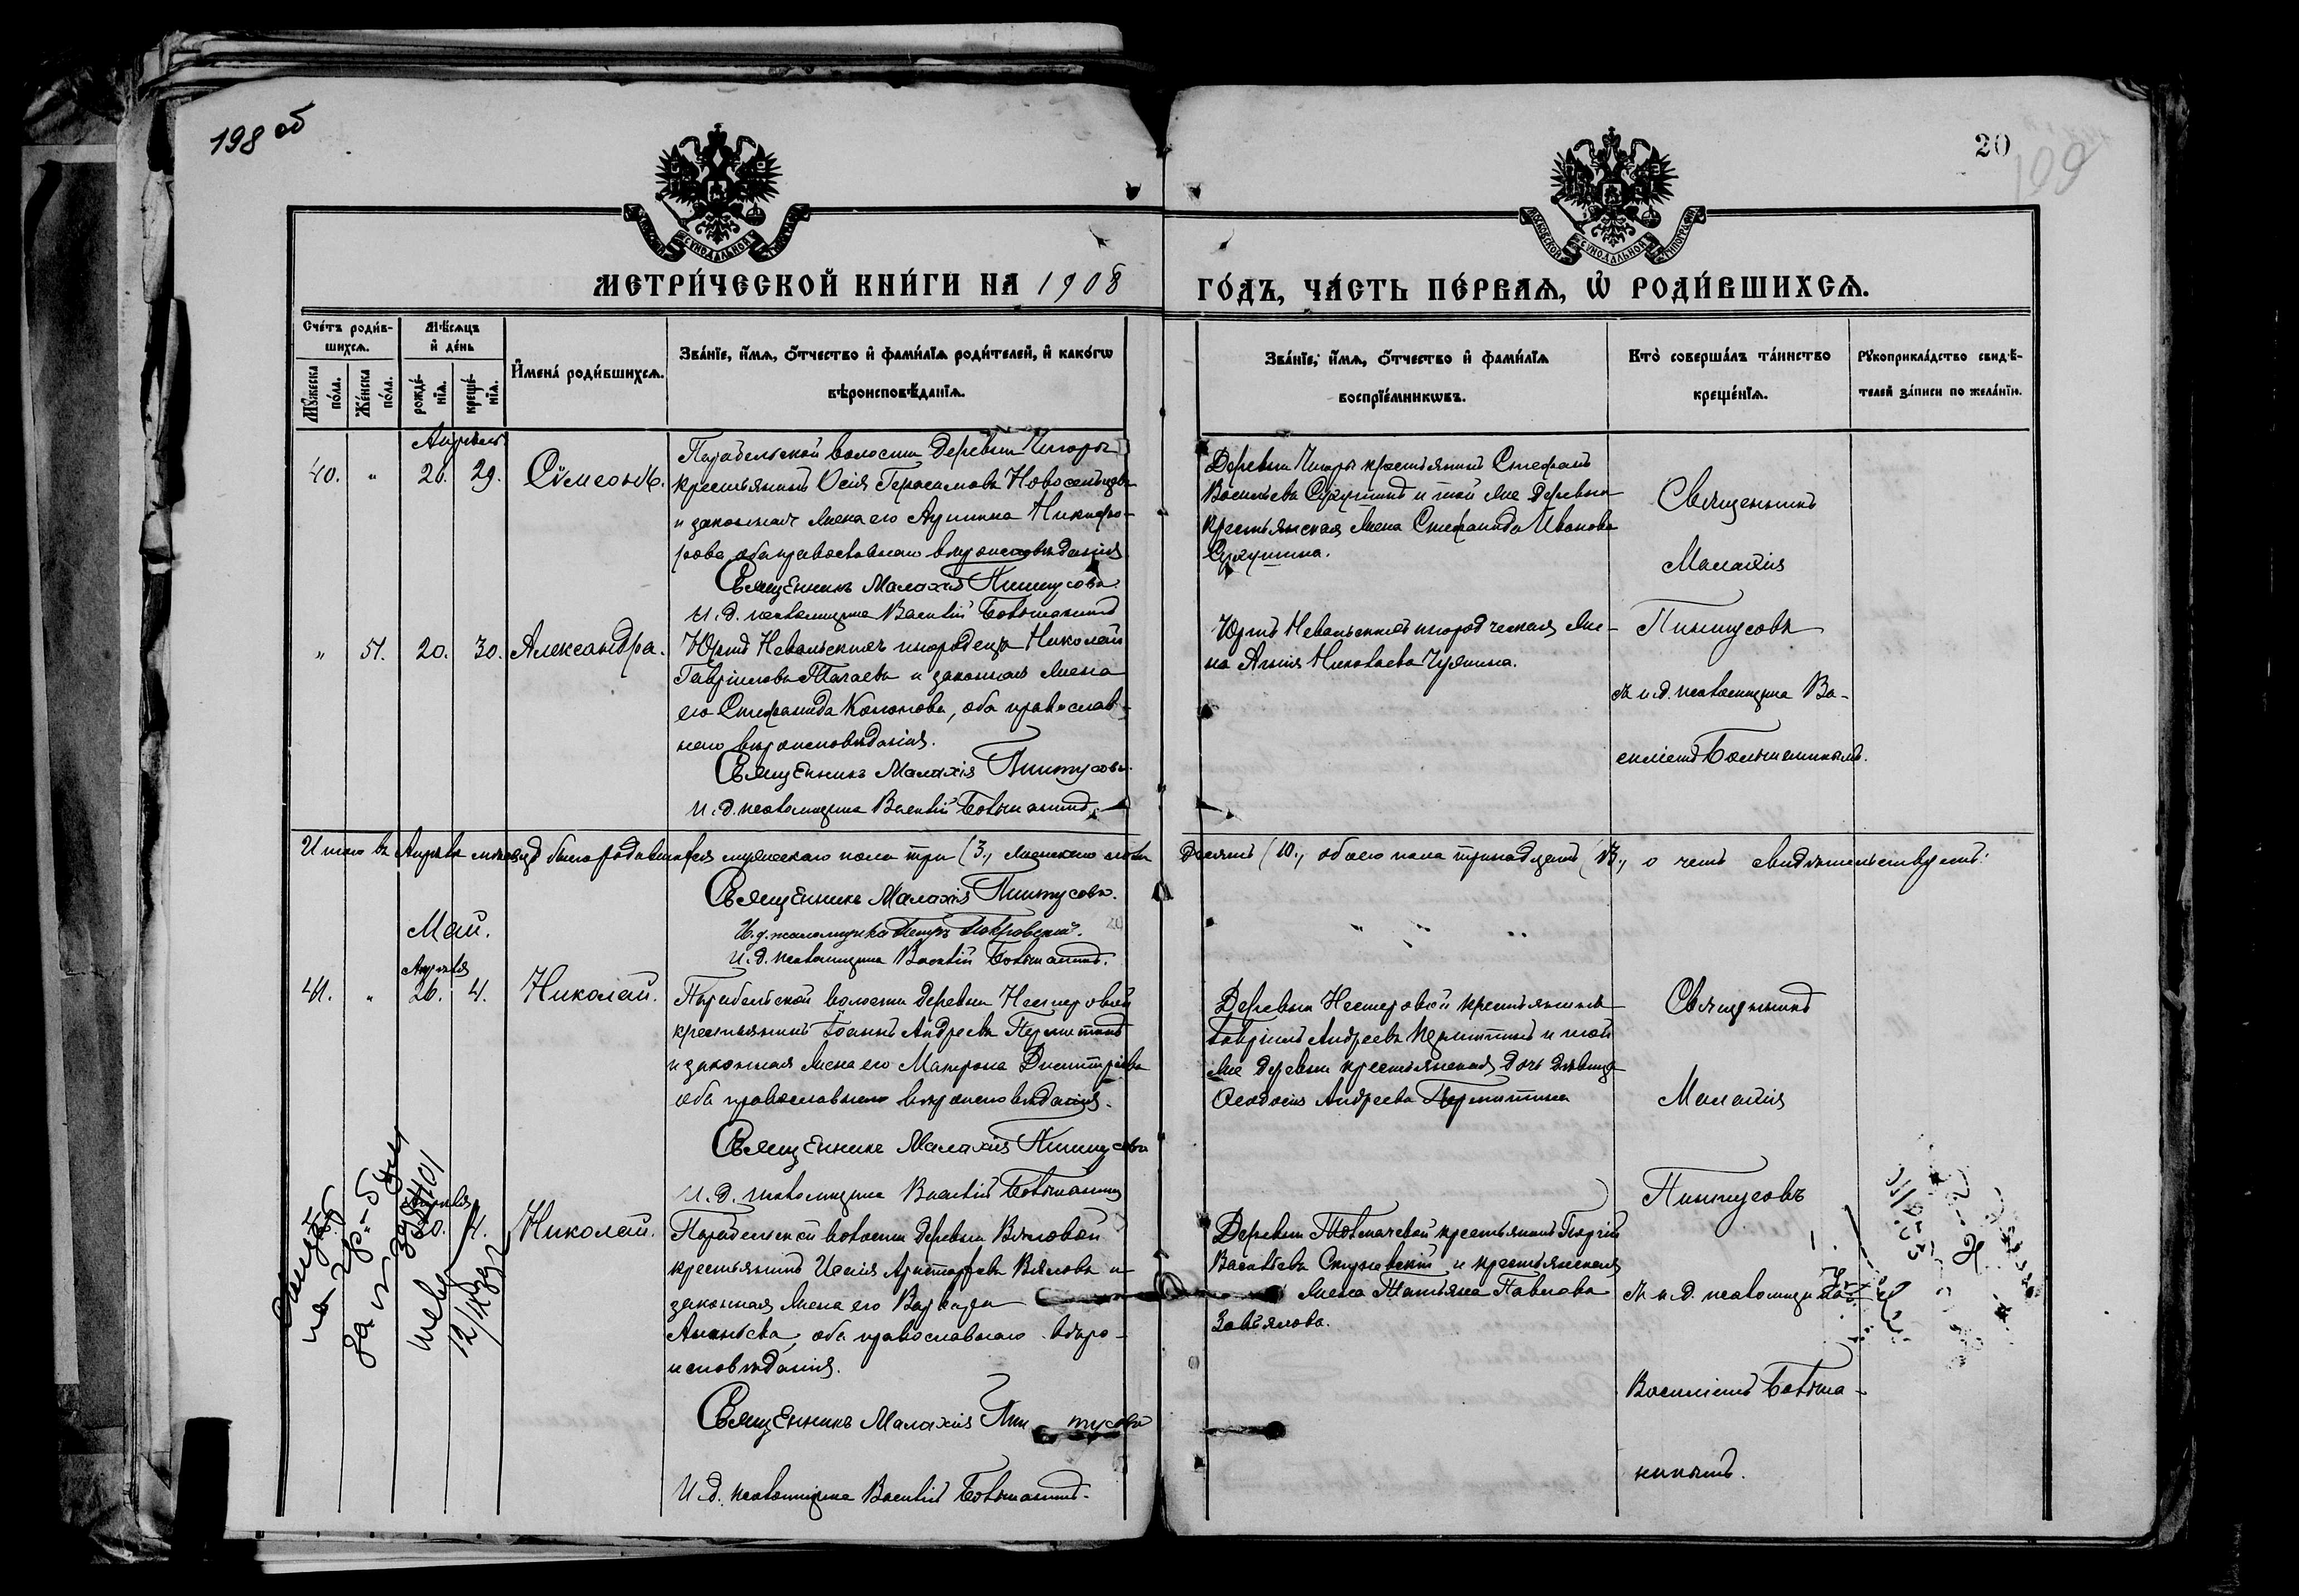 198 об
20
199
МОСКОВСКОЙ СѴНОДАЛЬНОЙ ТИПОГРАФІИ
МОСКОВСКОЙ СѴНОДАЛЬНОЙ ТИПОГРАФІИ
МЕТРИ́ЧЕСКОЙ КНИ́ГИ НА 1908
ГО́ДЪ, ЧА́СТЬ ПЕ́РВАѦ, Ѡ҆ РОДИ́ВШИХСѦ.
Сче́тъ роди́в-
шихсѧ.
Мꙋ́жеска по́ла.
Же́нска по́ла.
Мѣ́сѧцъ
и҆ де́нь
рожде́-
нїѧ.
креще́-
нїѧ.
И҆мена̀ роди́вшихсѧ.
Зва́нїе, и҆́мѧ, ѻ҆́тчество и҆ фами́лїѧ роди́телей, и҆ како́гѡ
вѣроисповѣ́данїѧ.
Зва́нїе, и҆́мѧ, ѻ҆́тчество и҆ фами́лїѧ
воспрїе́мникѡвъ.
Кто̀ соверша́лъ та́инство
креще́нїѧ.
Рꙋкоприкла́дство свидѣ́-
телей за́писи по жела́нїю.
Апрѣль
40. " 26. 29. Сѵмеонъ.
Парабельской волости деревни Чигоры
крестьянинъ Осія Герасимовъ Новосельцевъ
и законная жена его
рова оба православнаго вѣроисповѣданія
Священникъ Малахія Пинтусовъ
И. д. псаломщика Василій Большанинъ
Деревни Чигоры крестьянинъ Стефанъ
Васильевъ Сухушинъ и той же деревни
крестьянская жена Стефанида Иванова
Сухушина.
Священникъ
Малахія
Пинтусовъ
съ и.д. псаломщика Ва-
силіемъ Большанинымъ.
" 51. 20. 30. Александра.
Юртъ Невальскихъ инородецъ Николай
Гавріиловъ Тагаевъ и законная жена
его Стефанида Кононова, оба православ-
наго вѣроисповѣданія.
Священникъ Малахія Пинтусовъ.
И. д. псаломщика Василій Большанинъ.
Юртъ Невальскихъ инородческая же-
на Анна Николаева
Итого въ Апрѣлѣ мѣсяцѣ было родившихся мужескаго пола три (3), женскаго пола десять (10), обоего пола тринадцать (13), о чемъ свидѣтельствуетъ:
Священникъ Малахія Пинтусовъ.
И. д. псаломщика Петръ Покровскій.
И. д. псаломщика Василій Большанинъ.
Май.
Апрѣля
41. " 26. 4. Николай.
Парабельской волости деревни Нестеровой
крестьянинъ Іоаннъ Андреевъ Пермитинъ
и законная жена его Матрона Димитріева
оба православнаго вѣроисповѣданія.
Священникъ Малахія Пинтусовъ
И. д. псаломщика Василій Большанинъ
Деревни Нестеровой крестьянинъ
Гавріилъ Андреевъ Пермитинъ и той
же деревни крестьянская дочь дѣвица
Ѳеодосія Андреева Пермитина
Священникъ
Малахія
Пинтусовъ
съ и.д. псаломщика
Василіемъ Больша-
нинымъ.
Апрѣля
4. Николай.
Парабельской волости деревни Вяловой
крестьянинъ Исаія Аристарховъ Вяловъ и
законная жена его Варвара
Ананьева, оба православнаго вѣро-
исповѣданія.
Священникъ Малахія Пинтусовъ
И. д. псаломщика Василій Большанинъ.
Деревни Толмачевой крестьянинъ Георгій
Васильевъ и крестьянская
жена Татьяна Павлова
Завьялова.
12/